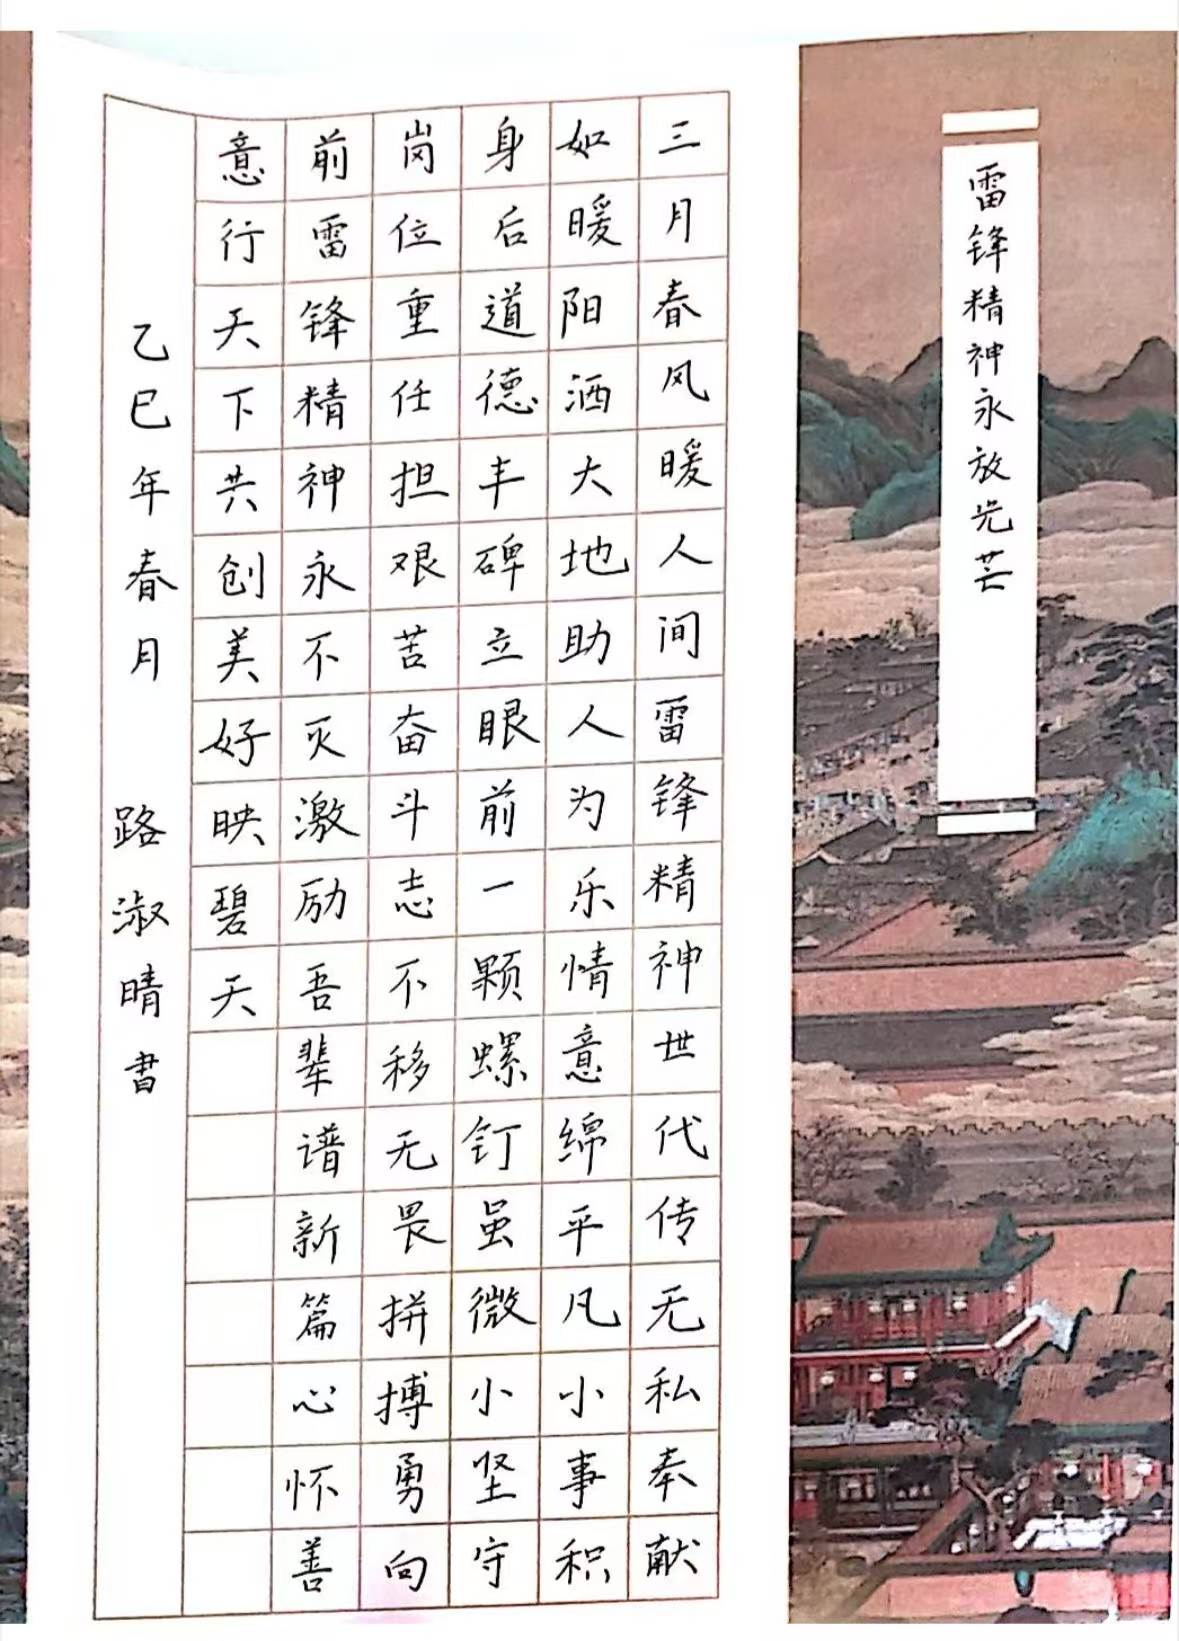 雷锋精神永放光芒
三月春风暖人间雷锋精神世代传无私奉献
如暖阳洒大地助人为乐情意绵平凡小事积
身后道德丰碑立眼前一颗螺钉虽微小坚守
岗位重任担艰苦奋斗志不移无畏拼搏勇向
前雷锋精神永不灭激励吾辈谱新篇心怀善
意行天下共创美好映碧天
乙巳年春月 路淑晴书